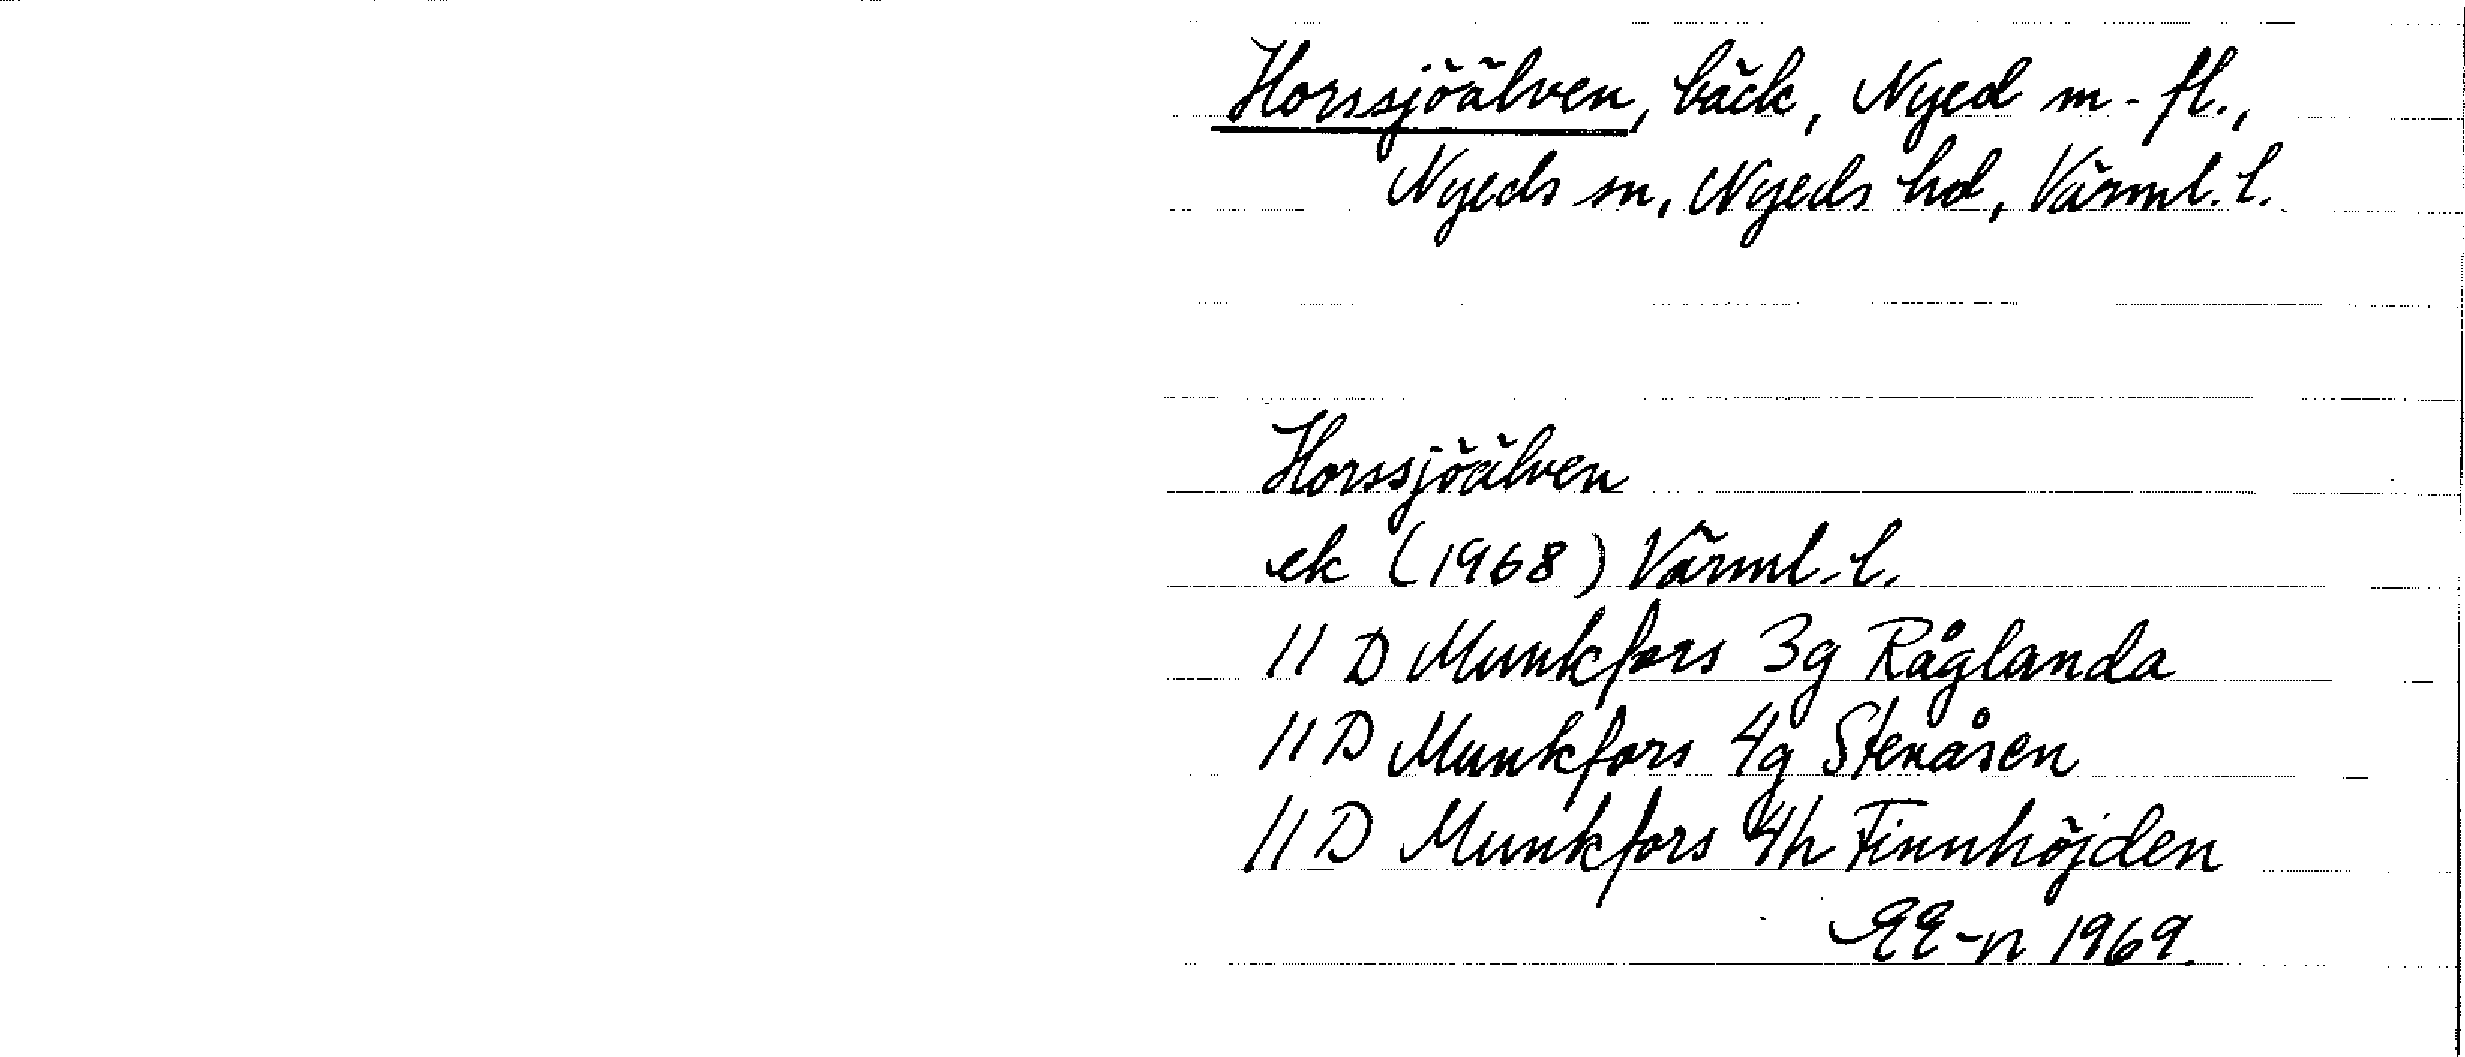 Horssjöälven, bäck, Nyed m. fl.,
Nyeds sn, Nyeds hd, Värml. l.
Horssjöälven
ek (1968) Värml. l.
11 D Munkfors 3g Råglanda
11 D Munkfors 4g Stenåsen
11 D Munkfors 4h Finnhöjden
EE-n 1969.